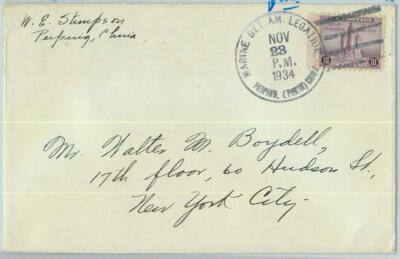 W. E. Stimpson
Peiping, China.
MARINE DET. AM. LEGATION
NOV
23
P.M.
1934
PEIPING, (PEKIN) CHINA
U.S. POSTAGE
III III
Mr. Walter M. Boydell,
17th floor, 60 Hudson St.,
New York City-